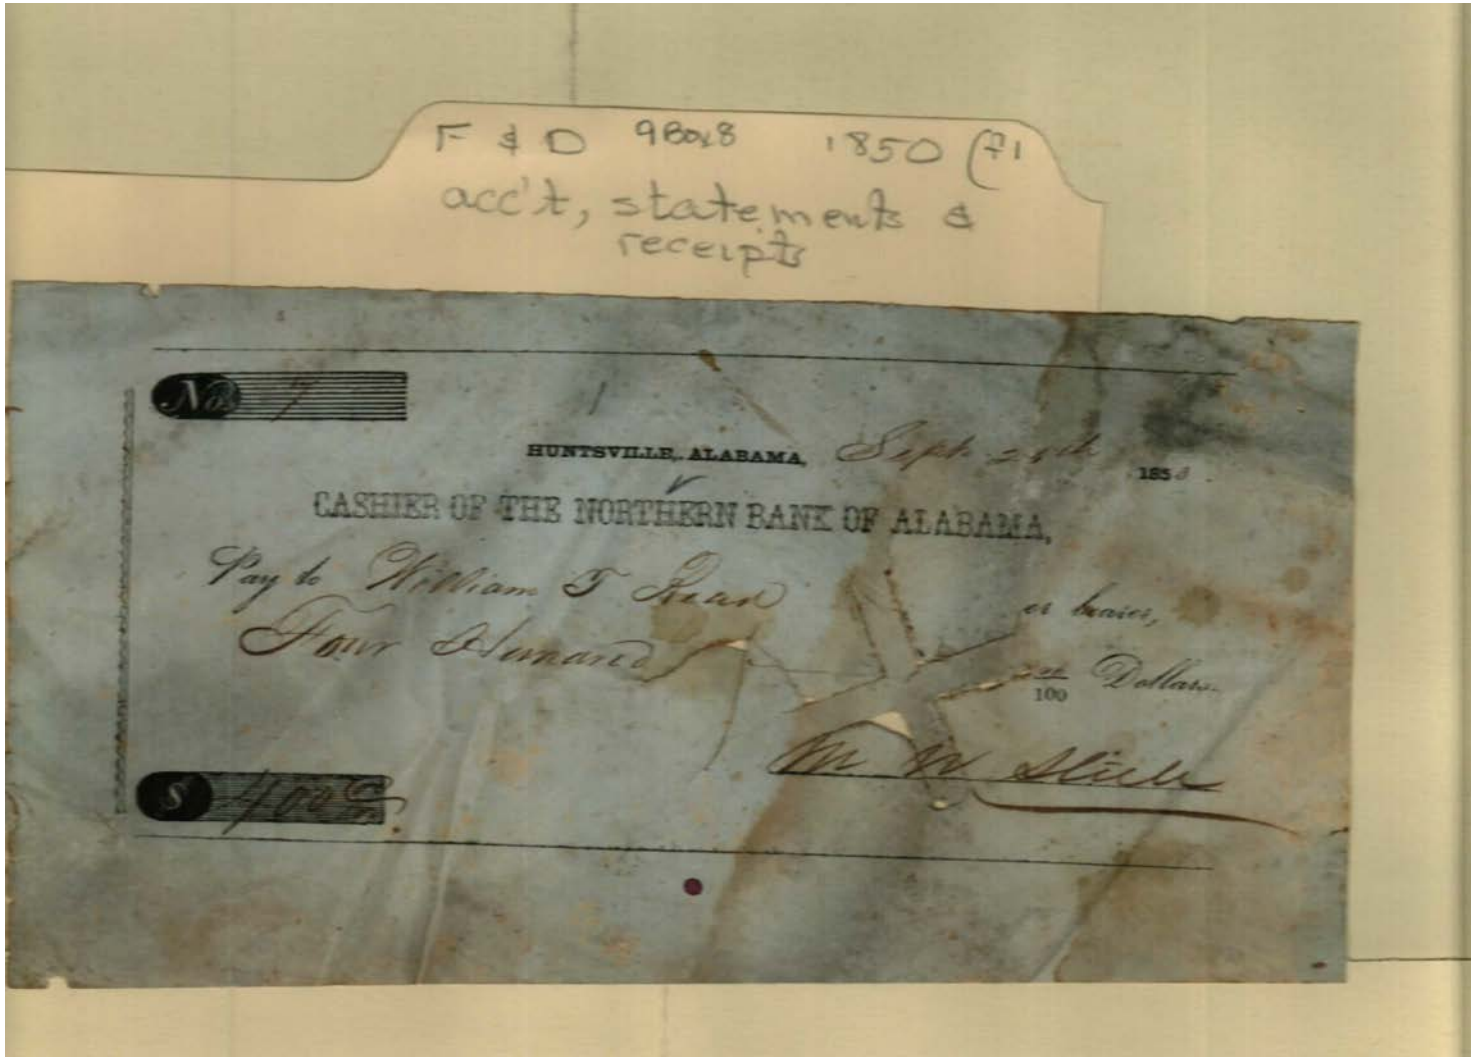 F & D 9Box8 1850 (f1
acc't, statements &
receipts
No. 7
HUNTSVILLE, ALABAMA, Sept 28th 185
CASHIER OF THE NORTHERN BANK OF ALABAMA,
Pay to William T or bearer,
Four Hundred 00/100 Dollars.
$ 400
M. W.